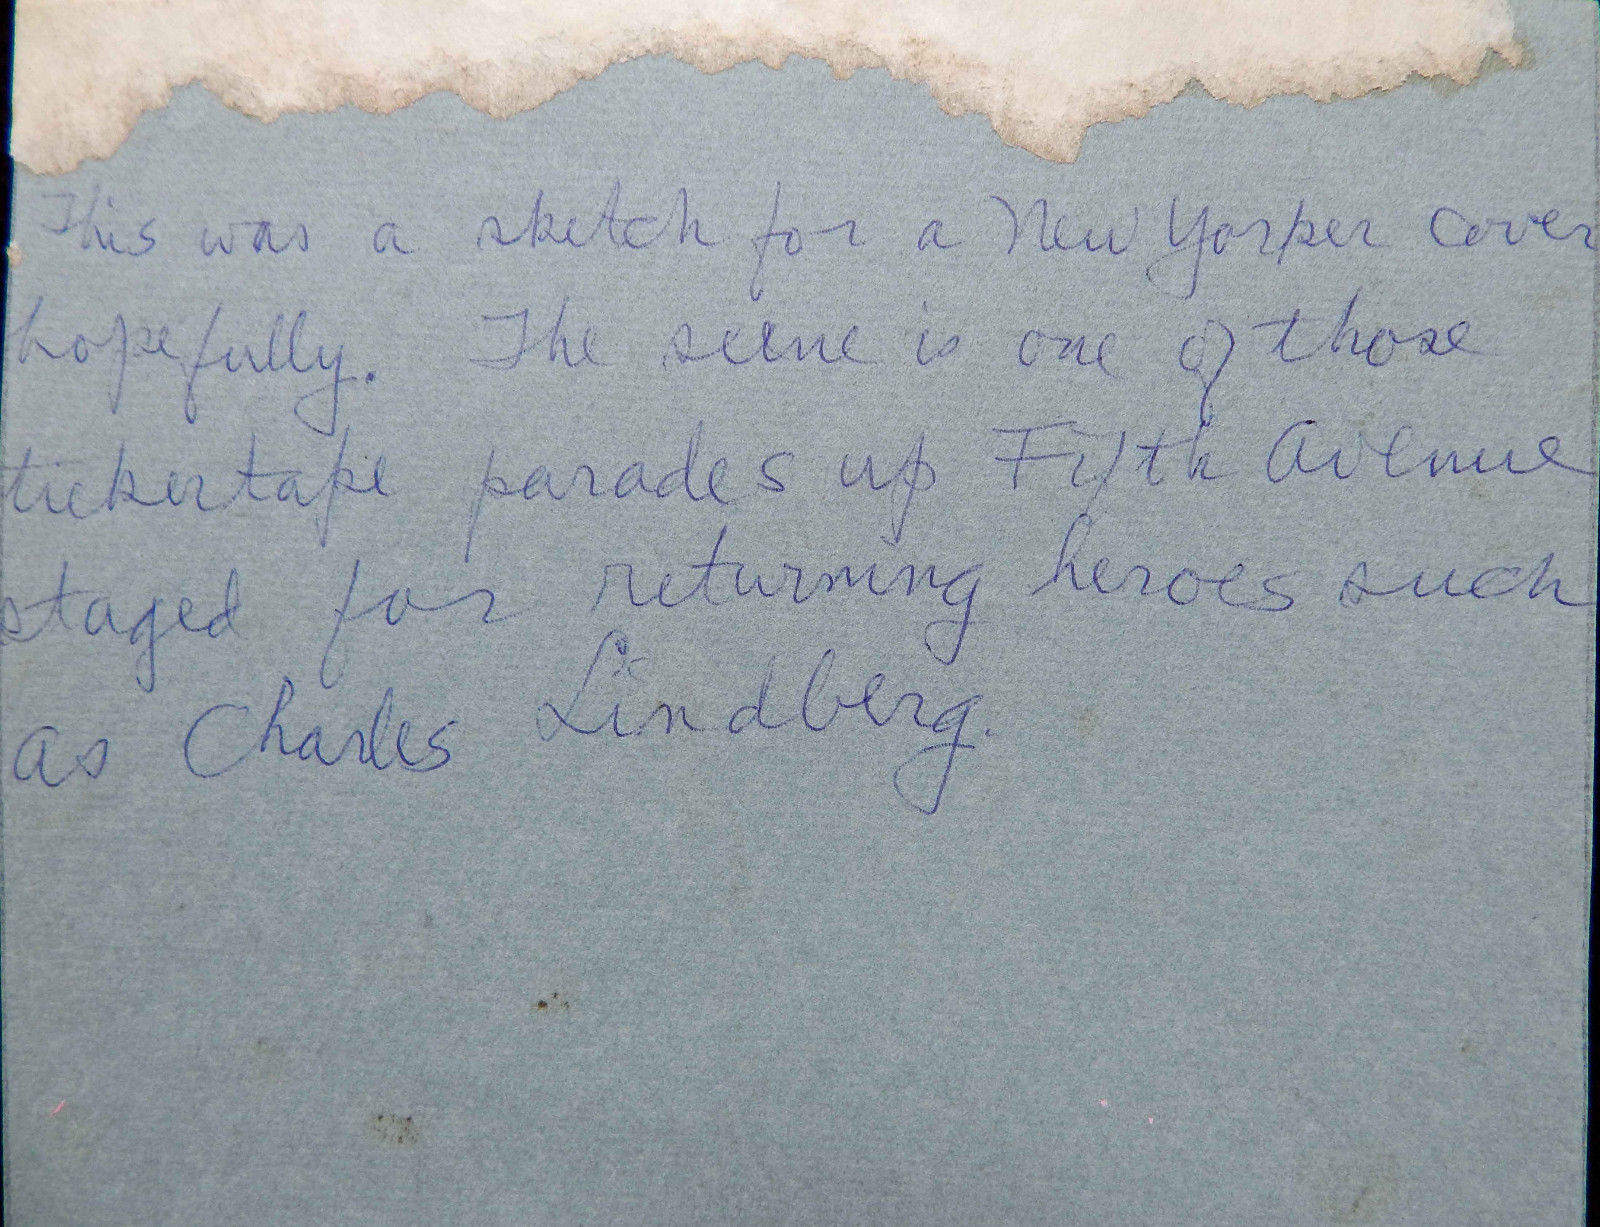 This was a sketch for a New Yorker cover
hopefully. The scene is one of those
tickertape parades up Fifth Avenue
staged for returning heroes such
as Charles Lindberg.